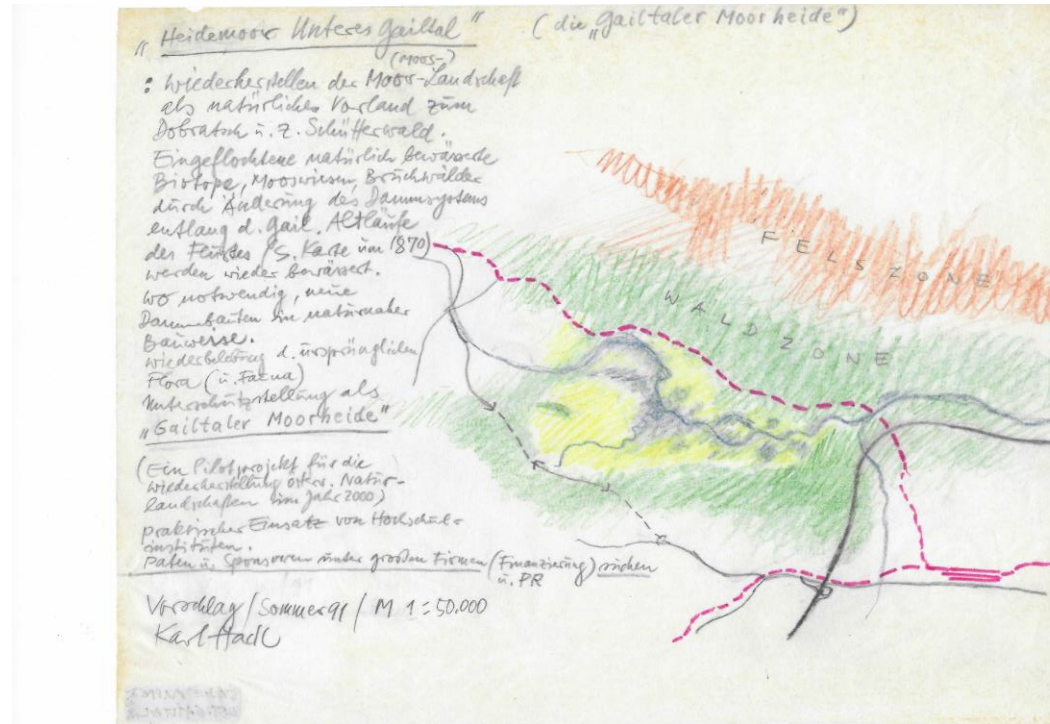 "Heidemoor Unteres Gailtal" (die „Gailtaler Moorheide")
(Moos-)
: Wiederherstellen der Moor-Landschaft
als natürliches Vorland zum
Dobratsch u. z. Schütterwald.
Eingeflochtene natürlich bewässerte
Biotope, Mooswiesen, Bruchwälder
durch Änderung des Dammsystems
entlang d. Gail. Altläufe
des Flusses (S. Karte um 1870)
werden wieder bewässert.
wo notwendig, neue
Dammbauten in naturnaher
Bauweise.
Wiederbelebung d. ursprünglichen
Flora (u. Fauna)
Unterschutzstellung als
"Gailtaler Moorheide"
(Ein Pilotprojekt für die
Wiederherstellung österr. Natur-
landschaften im Jahr 2000)
praktischer Einsatz von Hochschul-
instituten.
Paten u. Sponsoren unter großen Firmen (Finanzierung) suchen
u. PR
Vorschlag / Sommer 91 / M 1:50.000
Karl Hack
FELSZONE
WALDZONE